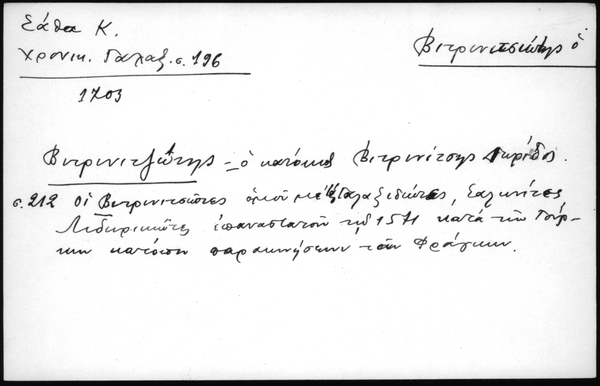 Σάθα Κ.
Χρονικ. Γαλαξ. σ. 196
Βιτρινιτσιώτης ὁ
1703
Βιτρινιτζιώτης = ὁ κάτοικος Βιτρινίτσης Δωρίδος.
σ. 212 οἱ Βιτρινιτσιῶτες ὁμοῦ με Γαλαξιδιῶτες, Σαλωνίτες
Λιδωρικιῶτες ἐπαναστατοῦν τῷ 1571 κατὰ τῶν Τούρ-
κων κατόπιν παρακινήσεων τῶν Φράγκων.